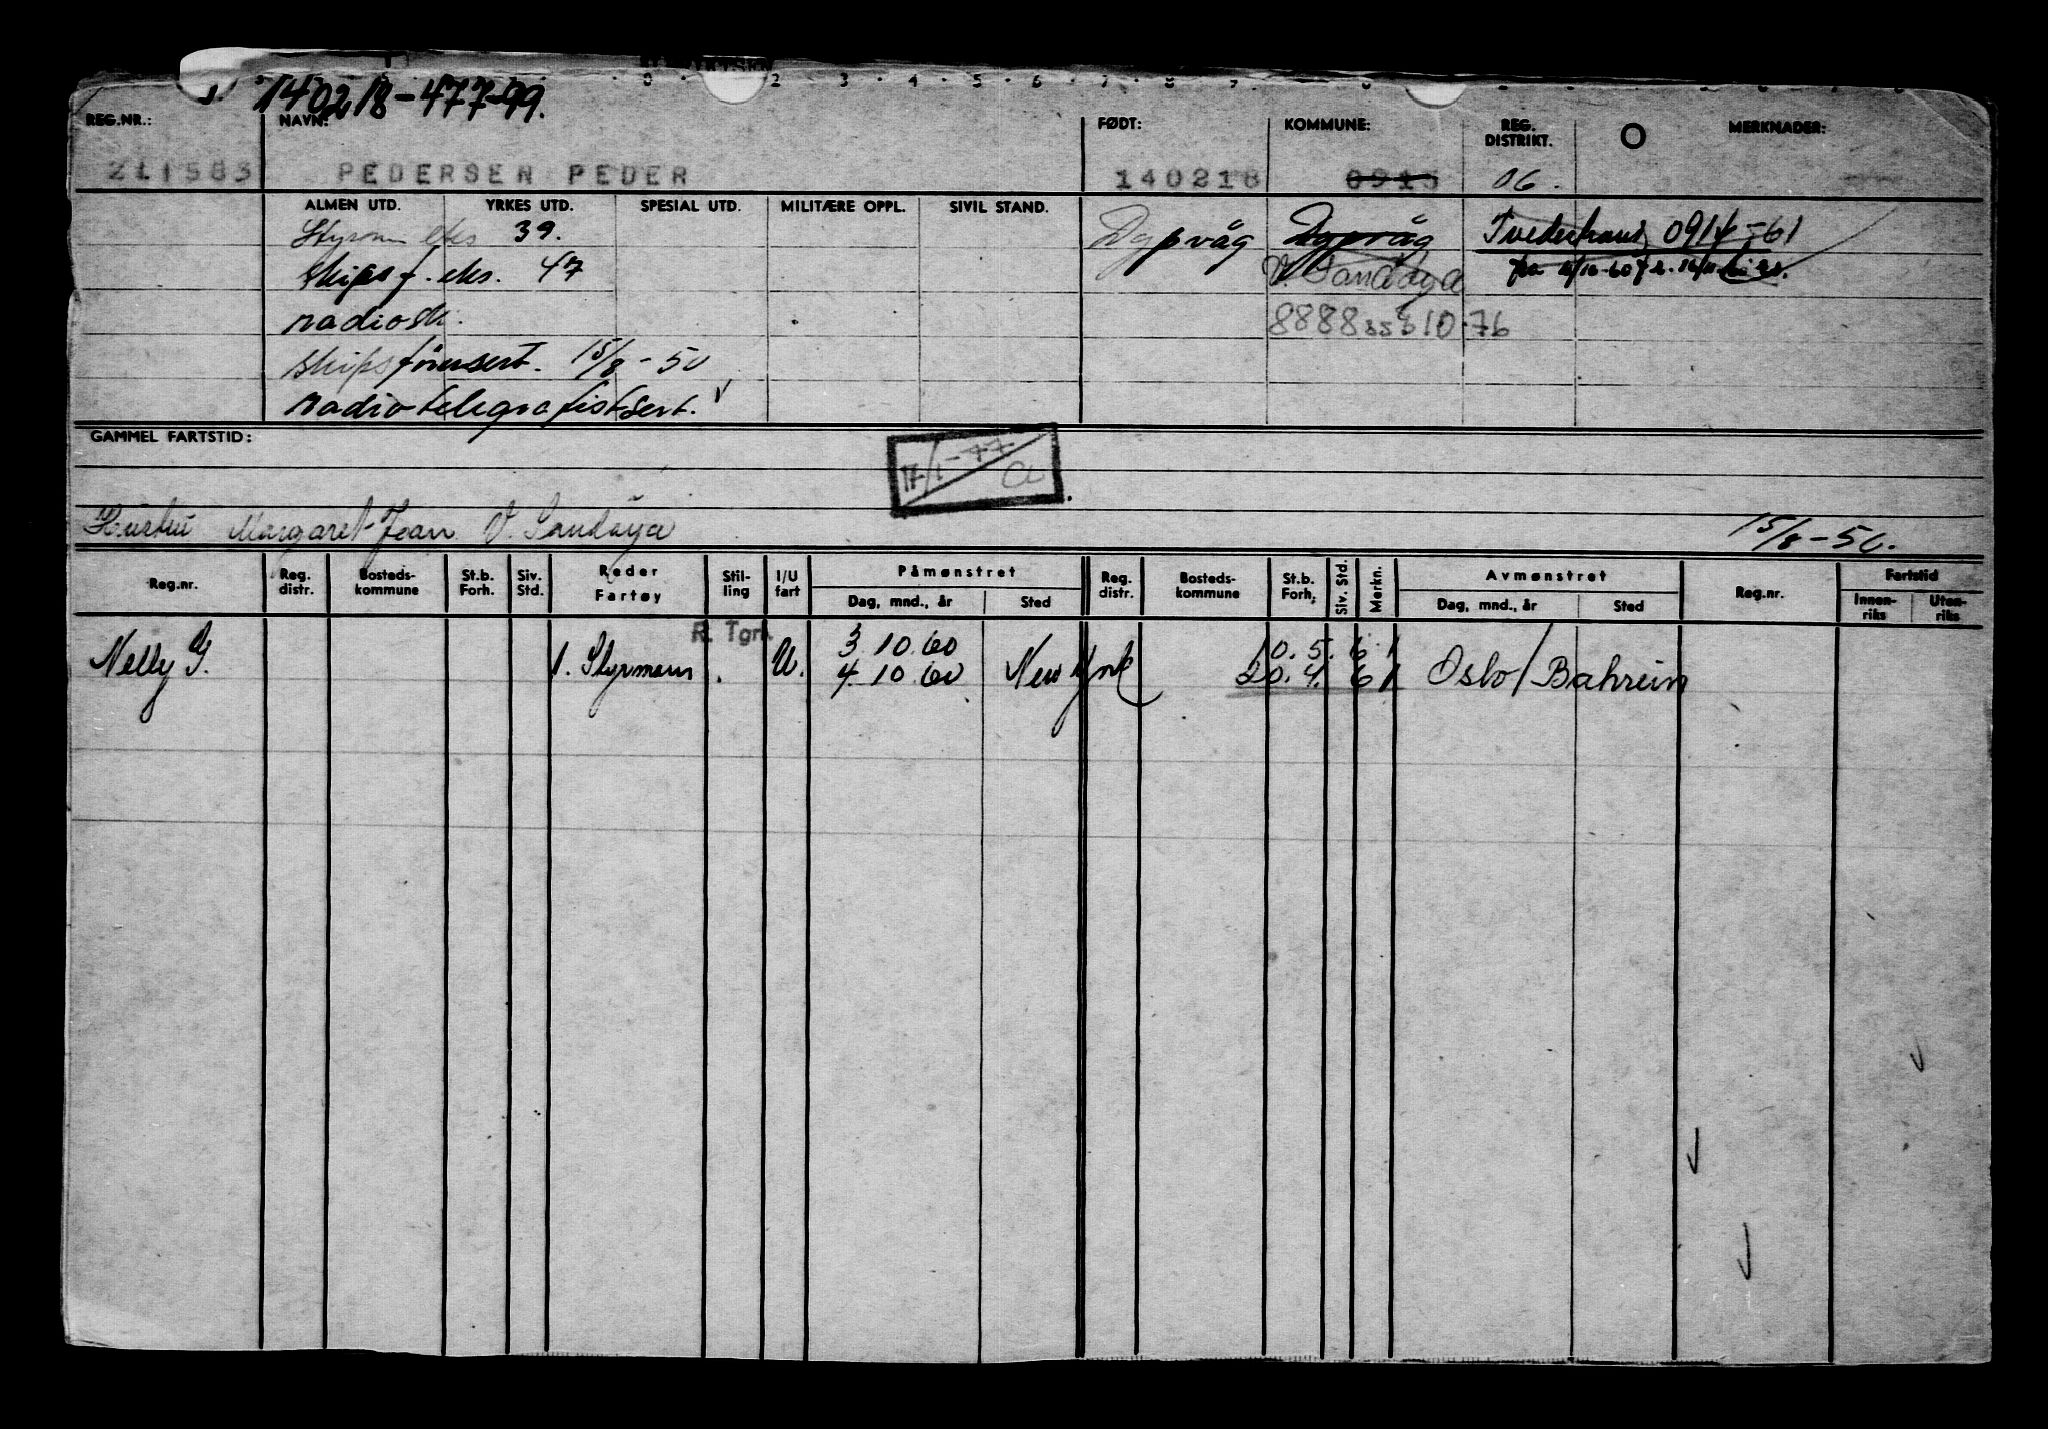 140218-477-99.
REG.NR.: NAVN: FØDT: KOMMUNE: REG. DISTRIKT. MERKNADER:
211583 PEDERSEN PEDER 140218 0915 06.
ALMEN UTD. YRKES UTD. SPESIAL UTD. MILITÆRE OPPL. SIVIL STAND.
Styrm eks 39. Dypvåg Dypvåg Tvedestrand 0914-61
skipsf. eks. 47 V. Sandøya
radiosk. 8888 10-76
skipsførersert. 15/8-50
radiotelegrafistsert.
GAMMEL FARTSTID:
17/1-77
Hustru Margaret-Jean V. Sandøya 15/8-50.
Reg.nr. Reg. distr. Bosteds-kommune St.b. Forh. Siv. Std. Reder Fartøy Stil-ling I/U fart Påmønstret Dag, mnd., år Sted Reg. distr. Bosteds-kommune St.b. Forh. Siv. Std. Merkn. Avmønstret Dag, mnd., år Sted Reg.nr. Fartstid Innen-riks Uten-riks
R. Tgr. 3 10. 60 10. 5. 61
Nelly 1. Styrmann U. 4. 10 60 New York 20. 4. 61 Oslo/Bahrein